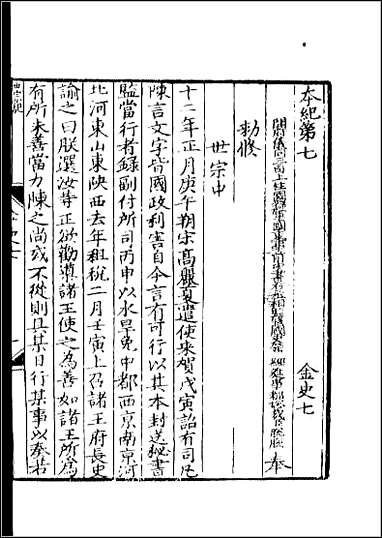 本紀第七
金史七
開府儀同三司上柱國錄軍國重事前中書右丞相監修國史領經筵事都總裁臣脫脫 奉
勅修
世宗中
十二年正月庚午朔宋高麗夏遣使來賀戊寅詔有司凡
陳言文字皆國政利害自今言有可行以其本封送秘書
監當行者録副付所司丙申以水旱免中都西京南京河
北河東山東陝西去年租稅二月壬寅上召諸王府長史
諭之曰朕選汝等正欲勸導諸王使之為善如諸王所為
有所未善當力陳之尚或不從則具某日行某事以奏若